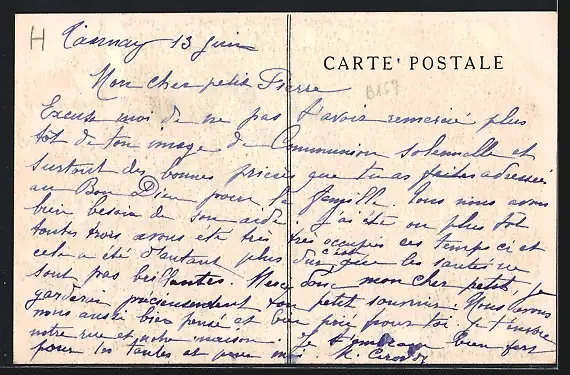 H
Tournay 13 Juin
CARTE POSTALE
Mon cher petit Pierre
Excuse moi de ne pas t'avoir remercié plus
tôt de ton image de Communion solennelle et
surtout des bonnes prières que tu as faites adressées
au Bon Dieu pour la famille. Nous nous avons
bien besoin de son aide. j'ai été ou plus tôt
toutes trois avons été très très occupées ces temps ci et
cela a été d'autant plus dur c'est que les santés ne
sont pas brillantes. Merci donc mon cher petit, je
garderai précieusement ton petit souvenir. Nous avons
nous aussi bien pensé et bien prié pour toi. Je t'envoie
notre rue et notre maison. Je t'embrasse bien fort
pour tes tantes et pour moi. M.